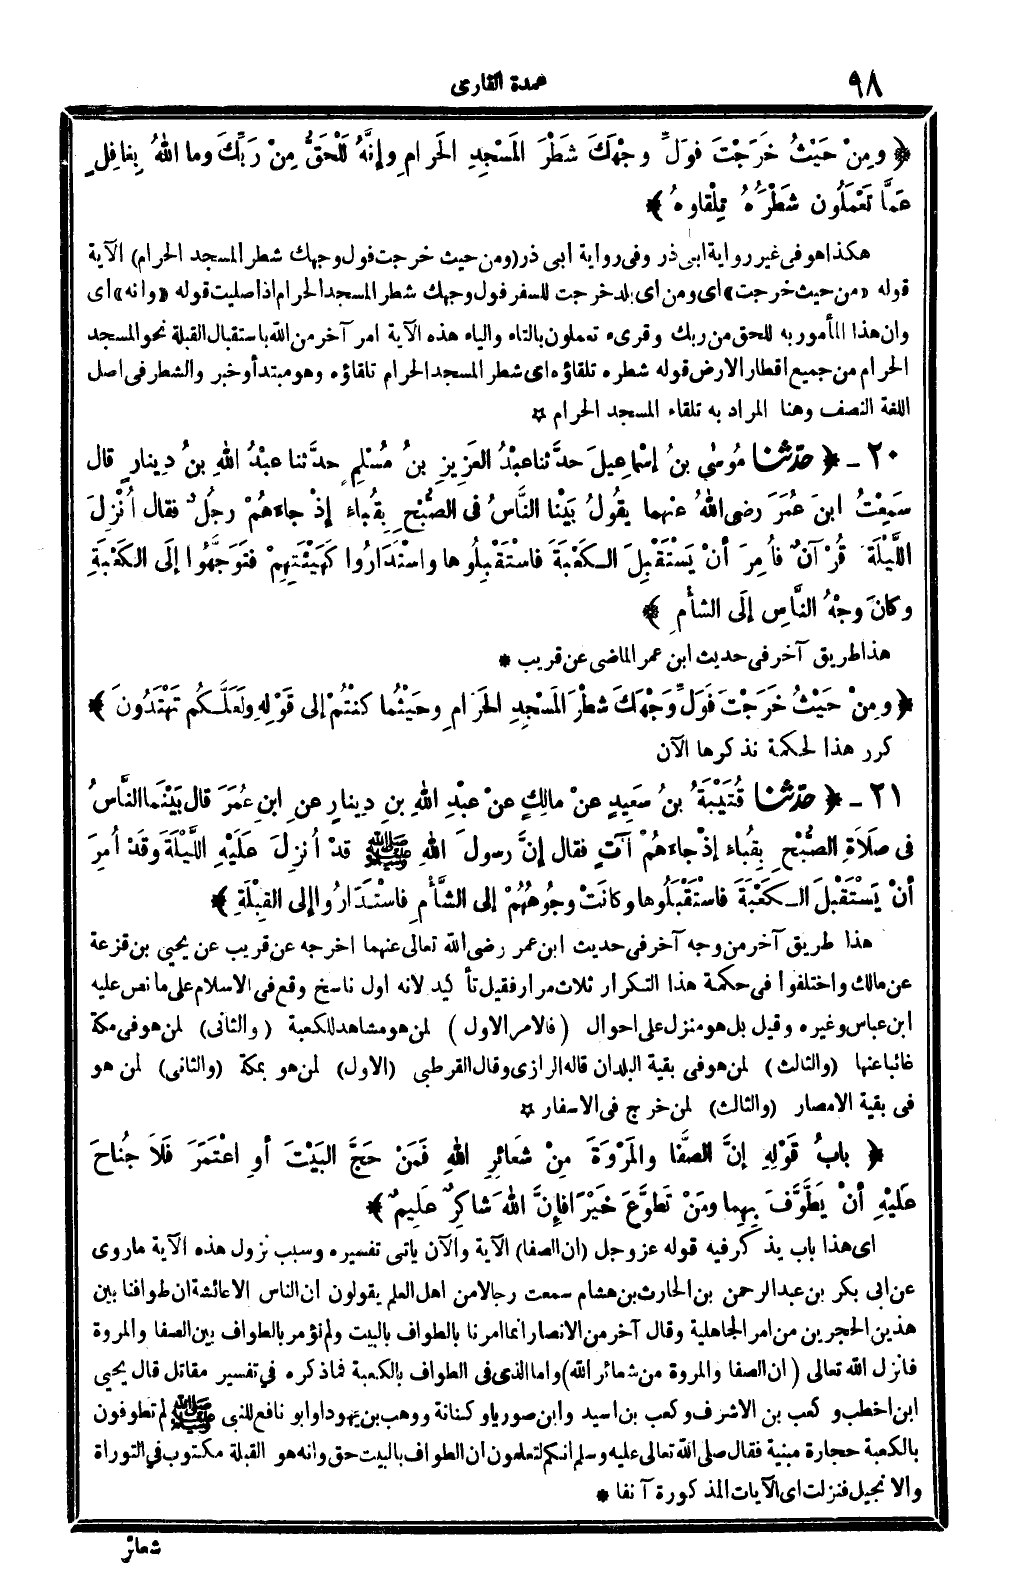 ٩٨
عمدة القارى
﴿ ومِنْ حَيْثُ خَرَجْتَ فَوَلِّ وجْهَكَ شَطْرَ المَسْجِدِ الحَرامِ وإنَّهُ لَلْحَقُّ مِنْ رَبِّكَ وما اللهُ بِغافِلٍ
عَمَّا تَعْمَلُون شَطْرَهُ تِلْقاوهُ ﴾
هكذا هو فى غير رواية ابى ذر وفى رواية ابى ذر (ومن حيث خرجت فول وجهك شطر المسجد الحرام) الآية
قوله «من حيث خرجت» اى ومن اى بلد خرجت للسفر فول وجهك شطر المسجد الحرام اذا صليت قوله «وانه» اى
وان هذا المأمور به للحق من ربك وقرىء تعملون بالتاء والياء هذه الآية امر آخر من الله باستقبال القبلة نحو المسجد
الحرام من جميع اقطار الارض قوله شطره تلقاؤه اى شطر المسجد الحرام تلقاؤه وهو مبتدأ وخبر والشطر فى اصل
اللغة النصف وهنا المراد به تلقاء المسجد الحرام ☆
٢٠ - ﴿ حدّثنا مُوسٰي بنُ إسْمَاعِيلَ حدَّثنا عبْدُ العَزِيزِ بنُ مُسْلِمٍ حدَّثنا عبْدُ اللهِ بنُ دِينارٍ قال
سَمِعْتُ ابنَ عُمَرَ رضى اللهُ عنهما يقُولُ بَيْنَا النَّاسُ فى الصُّبْحِ بِقُباءٍ إذْ جاءهُمْ رجُلٌ فقال أُنْزِلَ
اللَّيْلَةَ قُرْآنٌ فأُمِرَ أنْ يَسْتَقْبِلَ الـكَعْبَةَ فاسْتَقْبِلُوها واسْتَدَارُوا كَهَيْئَتِهِمْ فتَوَجَّهُوا إلَى الكَعْبَةِ
وكانَ وجْهُ النَّاسِ إلَى الشأمِ ﴾
هذا طريق آخر فى حديث ابن عمر الماضى عن قريب *
﴿ ومِنْ حَيْثُ خَرَجْتَ فَوَلِّ وَجْهَكَ شطْرَ المَسْجِدِ الحَرَامِ وحَيْثُما كنْتُمْ إلى قَوْلِهِ ولَعَلَّـكُم تَهْتَدُونَ ﴾
كرر هذا لحكمة نذكرها الآن
٢١ - ﴿ حدّثنا قُتَيْبَةُ بنُ سَعِيدٍ عنْ مالِكٍ عنْ عبْدِ اللهِ بنِ دِينارٍ عنِ ابنِ عُمَرَ قال بَيْنَما النَّاسُ
فى صلَاَةِ الصُّبْحِ بِقُباء إذْ جاءهُمْ آتٍ فقال إنَّ رسولَ اللهِ ﷺ قدْ أُنزِلَ عَلَيْهِ اللَّيْلَةَ وقَدْ أُمِرَ
أنْ يَسْتَقْبلَ الـكَعْبَةَ فاسْتَقْبَلُوها وكانَتْ وجُوهُهُمْ إلى الشَّأْمِ فاسْتَدَارُوا إلى القِبْلَةِ ﴾
هذا طريق آخر من وجه آخر فى حديث ابن عمر رضى الله تعالى عنهما اخرجه عن قريب عن يحيى بن قزعة
عن مالك واختلفوا فى حكمة هذا التكرار ثلاث مرار فقيل تأكيد لانه اول ناسخ وقع فى الاسلام على ما نص عليه
ابن عباس وغيره وقيل بل هو منزل على احوال (فالامر الاول) لمن هو مشاهد للكعبة (والثانى) لمن هو فى مكة
غائبا عنها (والثالث) لمن هو فى بقية البلدان قاله الرازى وقال القرطبى (الاول) لمن هو بمكة (والثانى) لمن هو
فى بقية الامصار (والثالث) لمن خرج فى الاسفار ☆
﴿ بابُ قَوْلِهِ إنَّ الصَّفا والمَرْوَةَ مِنْ شعَائِرِ اللهِ فَمَنْ حَجَّ البَيْتَ أو اعْتَمَرَ فَلاَ جُناحَ
عَلَيْهِ أنْ يَطَّوَّفَ بِهِما ومَنْ تَطوَّعَ خَيْرًا فإنَّ اللهَ شاكِرٌ عَلِيمٌ ﴾
اى هذا باب يذكر فيه قوله عز وجل (ان الصفا) الآية والآن ياتى تفسيره وسبب نزول هذه الآية ماروى
عن ابى بكر بن عبد الرحمن بن الحارث بن هشام سمعت رجالا من اهل العلم يقولون ان الناس الا عائشة ان طوافنا بين
هذين الحجرين من امر الجاهلية وقال آخر من الانصار انما امرنا بالطواف بالبيت ولم نؤمر بالطواف بين الصفا والمروة
فانزل الله تعالى (ان الصفا والمروة من شعائر الله) واما الذى فى الطواف بالكعبة فما ذكره في تفسير مقاتل قال يحيى
ابن اخطب وكعب بن الاشرف وكعب بن اسيد وابن صوريا وكنانة ووهب بن يهودا وابو نافع للنبى ﷺ لم تطوفون
بالكعبة حجارة مبنية فقال صلى الله تعالى عليه وسلم انكم لتعلمون ان الطواف بالبيت حق وانه هو القبلة مكتوب في التوراة
والانجيل فنزلت اى الآيات المذكورة آنفا *
شعائر